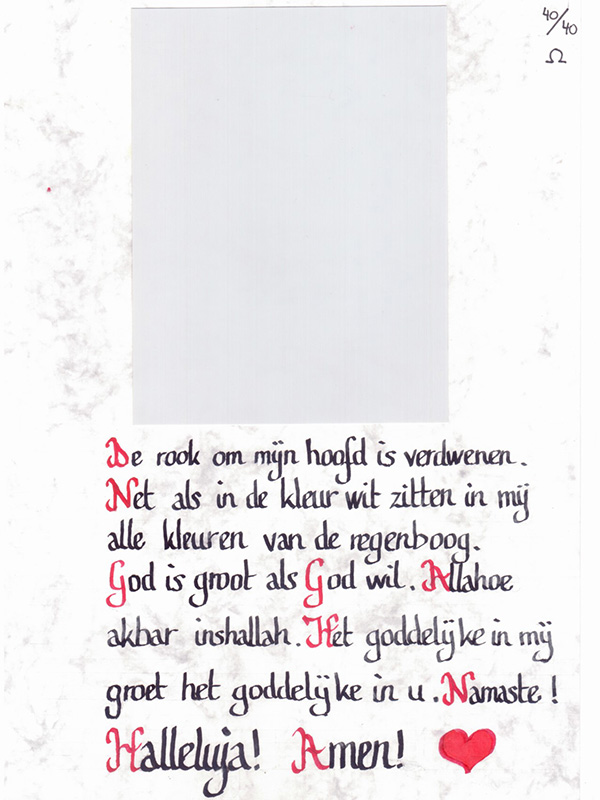 40/40
Ω
De rook om mijn hoofd is verdwenen.
Net als in de kleur wit zitten in mij
alle kleuren van de regenboog.
God is groot als God wil. Allahoe
akbar inshallah. Het goddelijke in mij
groet het goddelijke in u. Namaste!
Halleluja! Amen!